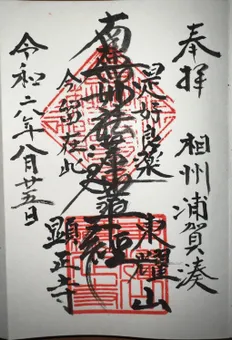 奉拝 相州浦賀湊
是好良薬
南無妙法蓮華経
今留在此
東耀山
顕正寺
令和二年八月廿五日